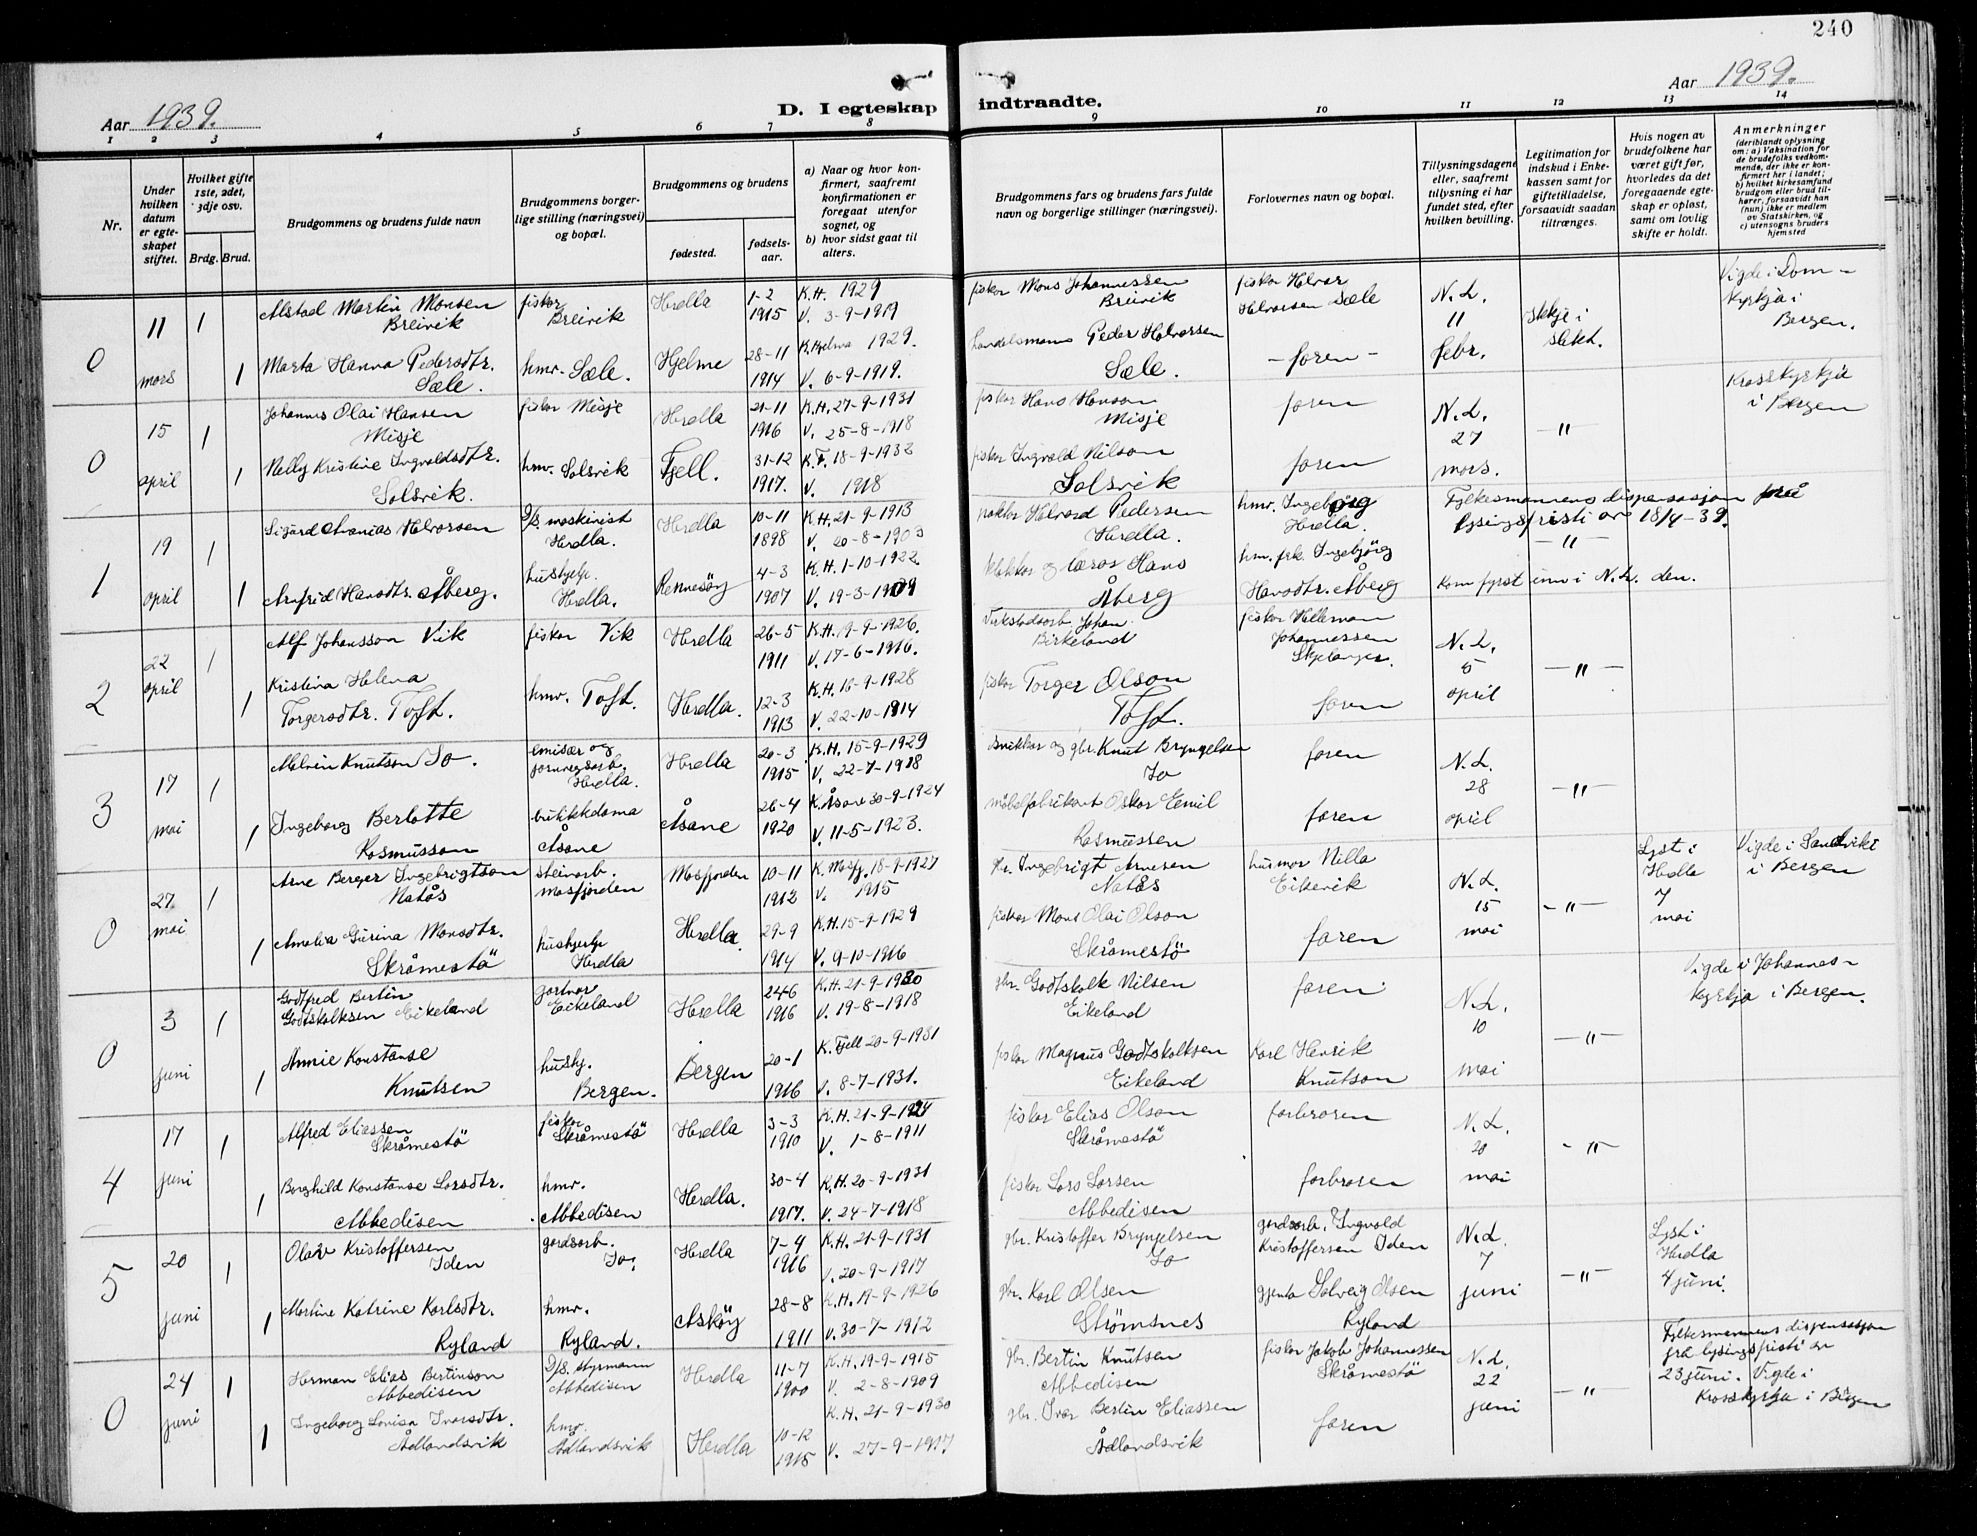 240
Aar 1939.
D. I egteskap indtraadte.
Aar 1939.
1 2 3 4 5 6 7 8 9 10 11 12 13 14
Nr.
Under hvilken datum er egteskapet stiftet.
Hvilket gifte 1ste, 2det, 3dje osv.
Brdg. Brud.
Brudgommens og brudens fulde navn
Brudgommens borgerlige stilling (næringsvei) og bopæl.
Brudgommens og brudens
fødested.
fødselsaar.
a) Naar og hvor konfirmert, saafremt konfirmationen er foregaat utenfor sognet, og
b) hvor sidst gaat til alters.
Brudgommens fars og brudens fars fulde navn og borgerlige stillinger (næringsvei).
Forlovernes navn og bopæl.
Tillysningsdagene eller, saafremt tillysning ei har fundet sted, efter hvilken bevilling.
Legitimation for indskud i Enkekassen samt for giftetilladelse, forsaavidt saadan tiltrænges.
Hvis nogen av brudefolkene har været gift før, hvorledes da det foregaaende egteskap er opløst, samt om lovlig skifte er holdt.
Anmerkninger
(deriblandt oplysning om: a) Vaksination for de brudefolks vedkommende, der ikke er konfirmert her i landet; b) hvilket kirkesamfund brudgom eller brud tilhører, forsaavidt han (hun) ikke er medlem av Statskirken, og c) utensogns bruders hjemsted
0 11 mars 1 Alstad Martin Monsen Breivik fiskar Breivik Herdla 1-2 1915 K.H. 1929 V. 3-9-1919 fiskar Mons Johannessen Breivik fiskar Halvor Halvorsen Sæle N.L. 11 febr. Ikkje i slekt. Vigde i Domkyrkja i Bergen.
1 Marta Hanna Pedersdtr. Sæle. hmv. Sæle. Hjelme 28-11 1914 K. Hjelme 1929. V. 6-9-1919. handelsmann Peder Halvorsen Sæle. - faren -
0 15 april 1 Johannes Olai Hansen Misje fiskar Misje Herdla 21-11 1916 K.H. 27-9-1931 V. 25-8-1918 fiskar Hans Hanson Misje faren N.L. 27 mars. -"- Krosskyrkja i Bergen
1 Nelly Kristine Ingvaldsdtr. Solsvik. hmv. Solsvik Fjell. 31-12 1917. K.F. 18-9-1932 V. 1918 fiskar Ingvald Nilson Solsvik faren
1 19 april 1 Sigurd Ananias Halvorsen D/s. maskinist Herdla. Herdla 10-11 1898 K.H. 21-9-1913 V. 20-8-1903 Halvard Pedersen Herdla. hmv. Ingebjørg Herdla. Fylkesmannens dispensasjon frå lysingsfristi av 18/4-39. -"-
1 Arnfrid Hansdtr. Åberg. hushjelp. Herdla. Rennesöy 4-3 1907 K.H. 1-10-1922. V. 19-3-1909 klokkar og lærar Hans Åberg hm. frk. Ingebjörg Hansdtr. Åberg kom fyrst inn i N.L. den.
2 22 april 1 Alf Johansson Vik fiskar Vik Herdla 26-5 1911 K.H. 19-9-1926. V. 17-6-1916. Verkstadarb. Johan Birkeland fiskar Valleman Johannessen Skjelanger. N.L. 5 april -"-
1 Kristina Helena Torgersdtr. Toft. hmv. Toft. Herdla. 12-3 1913 K.H. 16-9-1928 V. 22-10-1914 fiskar Torger Olson Toft. faren
3 17 mai 1 Melvin Knutson Io. emisær og jarnvegsarb. Herdla. Herdla 20-3 1915 K.H. 15-9-1929 V. 22-7-1918 snikkar og gbr. Knut Bryngelsen Io faren N.L. 28 april -"-
1 Ingeborg Berlotte Rasmusson butikkdama Åsane Åsane 26-4 1920 K. Åsane 30-9-1924 V. 11-5-1923. möbelfabrikant Oskar Emil Rasmussen faren
0 27 mai 1 Arne Berger Ingebrigtson Natås steinarb. Masfjorden Masfjorden 10-11 1912 K. Masfj. 18-9-1927 V. 1915 gbr. Ingebrigt Arnesen Natås husmor Nilla Eikevik N.L. 15 mai -"- Lyst i Herdla 7 mai Vigde i Sandviki i Bergen
1 Amelia Gurina Monsdtr. Skråmestö hushjelp Herdla Herdla. 29-9 1914 K.H. 15-9-1929 V. 9-10-1916 fiskar Mons Olai Olson Skråmestö faren
0 3 juni 1 Godtfred Bertin Godtskalksen Eikeland gartnar Eikeland Herdla 24-6 1916 K.H. 21-9-1930 V. 19-8-1918 gbr. Godtskalk Nilsen Eikeland faren N.L. 10 mai -"- Vigde i Johanneskyrkja i Bergen.
1 Annie Konstanse Knutsen hushj. Bergen. Bergen 20-1 1916 K. Fjell 20-9-1931 V. 8-7-1931. fiskar Magnus Godtskalksen Eikeland Karl Henrik Knutson
4 17 juni 1 Alfred Eliassen Skråmestö fiskar Skråmestö Herdla 3-3 1910 K.H. 21-9-1924 V. 1-8-1911 fiskar Elias Olson Skråmestö farbroren N.L. 20 mai -"-
1 Borghild Konstanse Larsdtr. Abbedisen hmv. Abbedisen Herdla. 30-4 1917. K.H. 20-9-1931 V. 24-7-1918 fiskar Lars Larsen Abbedisen farbroren
5 20 juni 1 Olav Kristoffersen Iden gardsarb. Io. Herdla 7-4 1916 K.H. 21-9-1931 V. 20-9-1917 gbr. Kristoffer Bryngelsen Io gardsarb. Ingvald Kristoffersen Iden N.L. 7 juni -"- Lyst i Herdla 4 juni.
1 Martine Katrine Karlsdtr. Ryland hmv. Ryland. Asköy 28-8 1911 K.H. 19-9-1926 V. 30-7-1912 gbr. Karl Olsen Strømsnes gjenta Solveig Olsen Ryland
0 24 juni 1 Herman Elias Bertinson Abbedisen D/s. styrmann Abbedisen Herdla 11-7 1900 K.H. 19-9-1915 V. 2-8-1909 gbr. Bertin Knutsen Abbedisen fiskar Jakob Johannessen Skråmestö N.L. 22 juni -"- Fylkesmannens dispensasjon frå lysingsfristi av 23 juni. Vigde i Krosskyrkja i Bergen
1 Ingeborg Lovisa Ivarsdtr. Ådlandsvik hmv. Ådlandsvik Herdla 10-12 1915 K.H. 21-9-1930 V. 27-9-1917 gbr. Ivar Bertin Eliassen Ådlandsvik faren